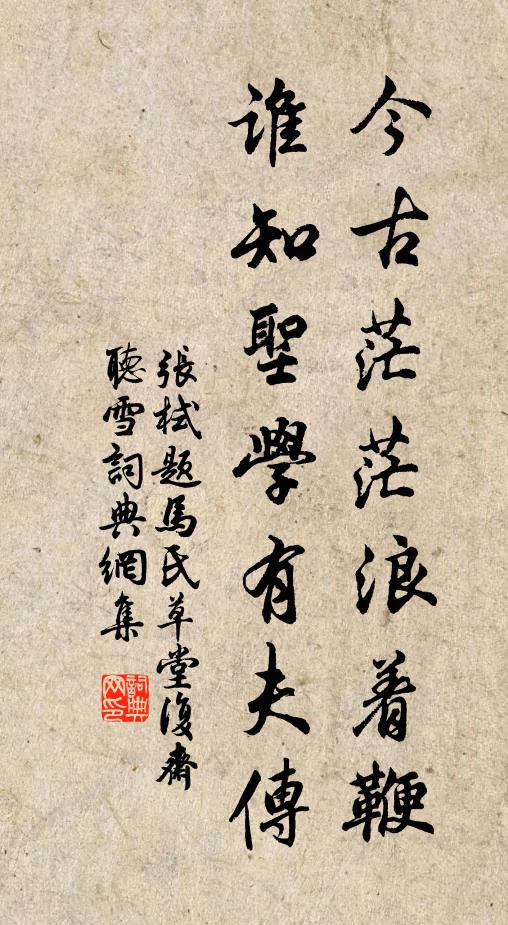 今古茫茫浪着鞭
誰知聖學有夫傳
張栻題馬氏草堂復齋
聽雪詞典網集
詞典
网印